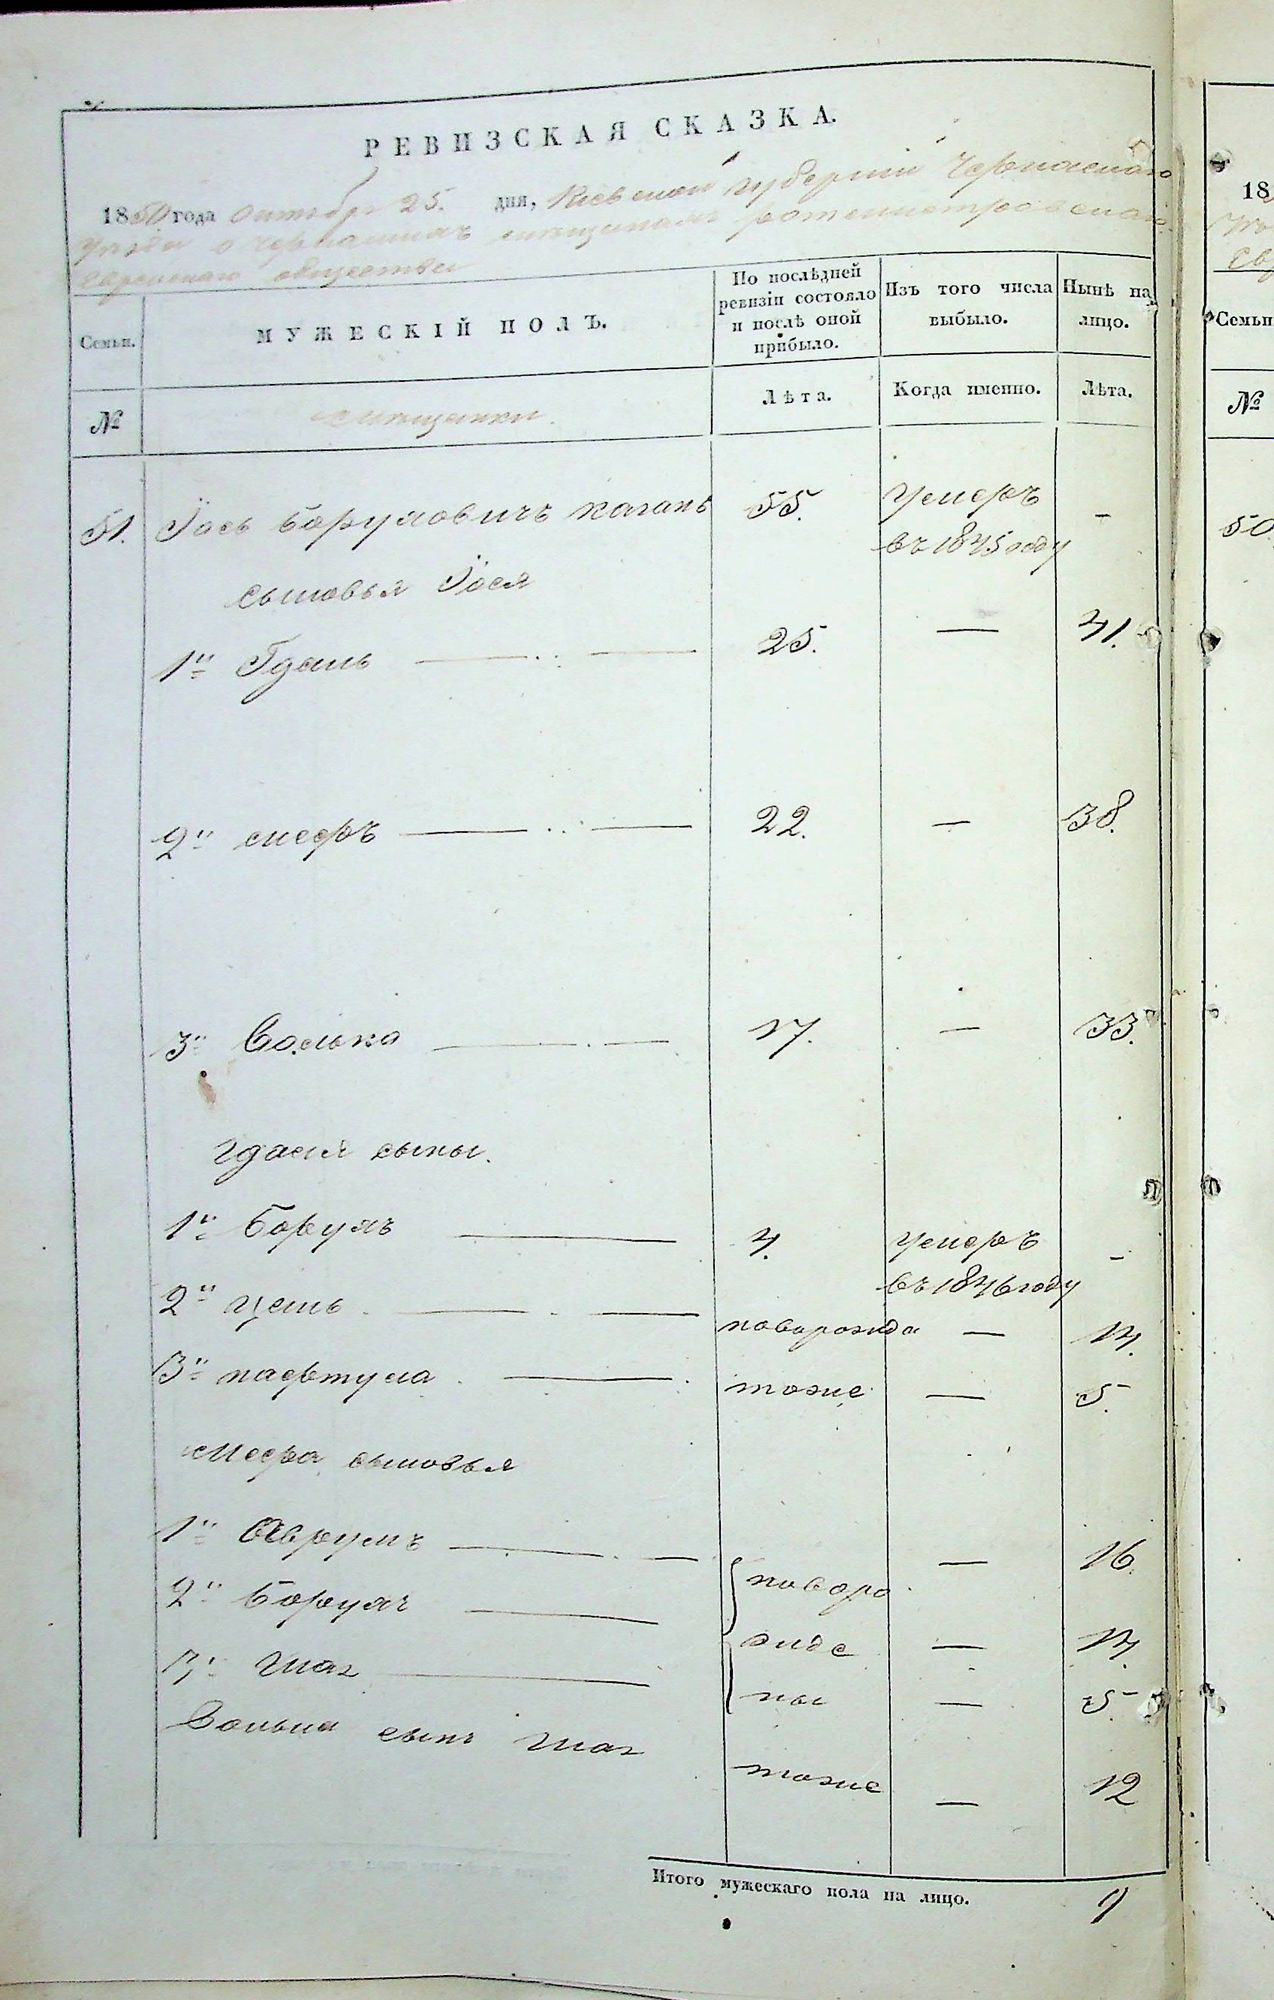 РЕВИЗСКАЯ СКАЗКА.
1850 года октября 25. дня, Киевской губернии Черкаскаго
уезда о мещанахъ ротмистровскаго
еврейскаго общества
Семьи.
МУЖЕСКІЙ ПОЛЪ.
По послѣдней ревизіи состояло и послѣ оной прибыло.
Изъ того числа выбыло.
Нынѣ на лицо.
№
мещанки.
Лѣта.
Когда именно.
Лѣта.
51. Іось Борухович каганъ 55. умеръ –
въ 1845 году
сыновья Іося
1й Гдаль 25. — 41.
2й меєръ 22. — 38.
3й Волько 17. — 33.
гдаля сыны.
1й Борухъ 4. умеръ –
въ 1846 году
2й новорожде — 14.
3й нафтула тоже — 5.
меера сыновья
1й Аврумъ — 16.
2й Борухъ новоро
жде — 14.
3й ны — 5.
Волька сынъ тоже — 12
Итого мужескаго пола на лицо. 9
18
Семьи
№
50